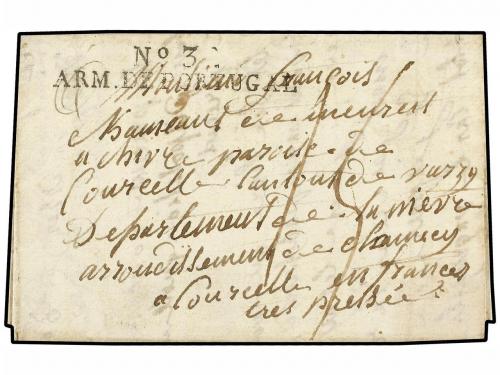 No 3
ARM. DE PORTUGAL
François
hameaux de meurest
a chivre paroise de
Courcelle Cantont de varzy
Departement de la nievre
arrondissement de clamecy
a Courcelle en frances
tres pressée